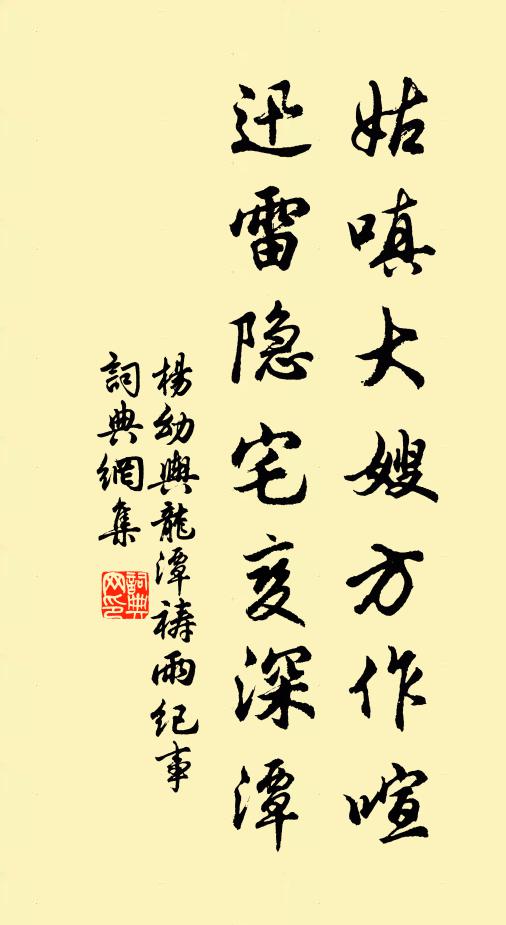 姑嗔大嫂方作喧
迅雷隐宅变深潭
楊幼輿龍潭禱雨紀事
詞典網集
詞典网印